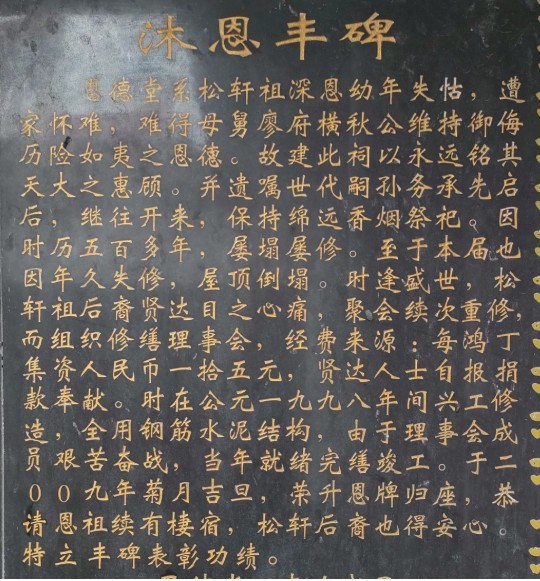 沐恩丰碑
恩德堂系松轩祖深恩幼年失怙，遭
家怀难，难得母舅廖府横秋公维持御侮
历险如夷之恩德。故建此祠以永远铭其
天大之惠顾。并遗嘱世代嗣孙务承先启
后，继往开来，保持绵远香烟祭祀。因
时历五百多年，屡塌屡修。至于本届也
因年久失修，屋顶倒塌。时逢盛世，松
轩祖后裔贤达目之心痛，聚会续次重修，
而组织修缮理事会，经费来源：每鸿丁
集资人民币一拾五元，贤达人士自报捐
款奉献。时在公元一九九八年间兴工修
造，全用钢筋水泥结构，由于理事会成
员艰苦奋战，当年就绪完缮竣工。于二
00九年菊月吉旦，荣升恩牌归座，恭
请恩祖续有棲宿，松轩后裔也得安心。
特立丰碑表彰功绩。